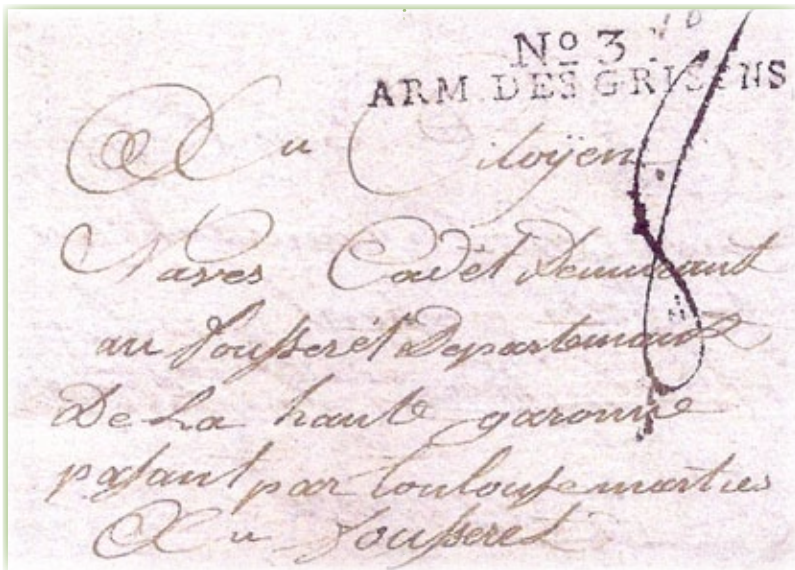 Nº 3
ARM. DES GRISONS
Au Citoÿen
Naves Cadet Demeurant
au fousseret Departement
De La haute garonne
passant par toulouse martres
Au fousseret